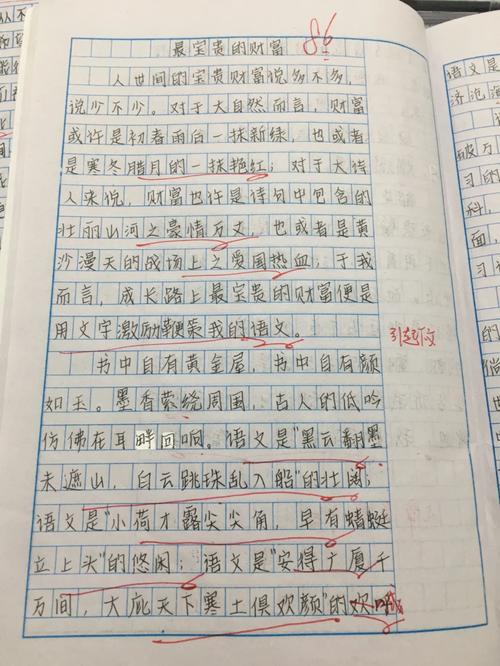 最宝贵的财富
86
人世间的宝贵财富说多不多，
说少不少。对于大自然而言，财富
或许是初春雨后一抹新绿，也或者
是寒冬腊月的一抹艳红；对于大诗
人来说，财富也许是诗句中包含的
壮丽山河之豪情万丈，也或者是黄
沙漫天的战场上之爱国热血；于我
而言，成长路上最宝贵的财富便是
用文字激励鞭策我的语文。
引起下文
书中自有黄金屋，书中自有颜
如玉。墨香萦绕周围，古人的低吟
仿佛在耳畔回响。语文是“黑云翻墨
未遮山，白云跳珠乱入船”的壮阔；
语文是“小荷才露尖尖角，早有蜻蜓
立上头”的悠闲；语文是“安得广厦千
万间，大庇天下寒士俱欢颜”的
语文是
济沧海